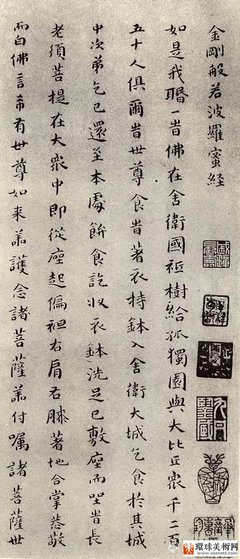 金剛般若波羅蜜経
如是我聞一旹佛在舍衛國祇樹給孤獨園與大比丘衆千二百
五十人俱爾旹世尊食旹著衣持鉢入舍衛大城乞食於其城
中次弟乞已還至本處飰食訖収衣鉢洗足已敷座而坐旹長
老須菩提在大衆中即從座起偏袒右肩右膝著地合掌恭敬
而白佛言希有世尊如来善護念諸菩薩善付囑諸菩薩世
環球美術網